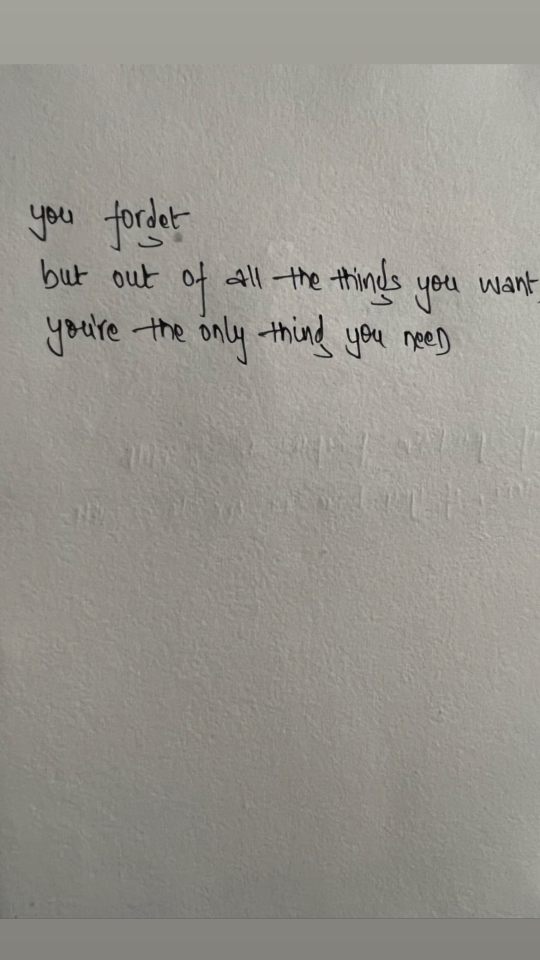 you forget
but out of all the things you want,
you're the only thing you need